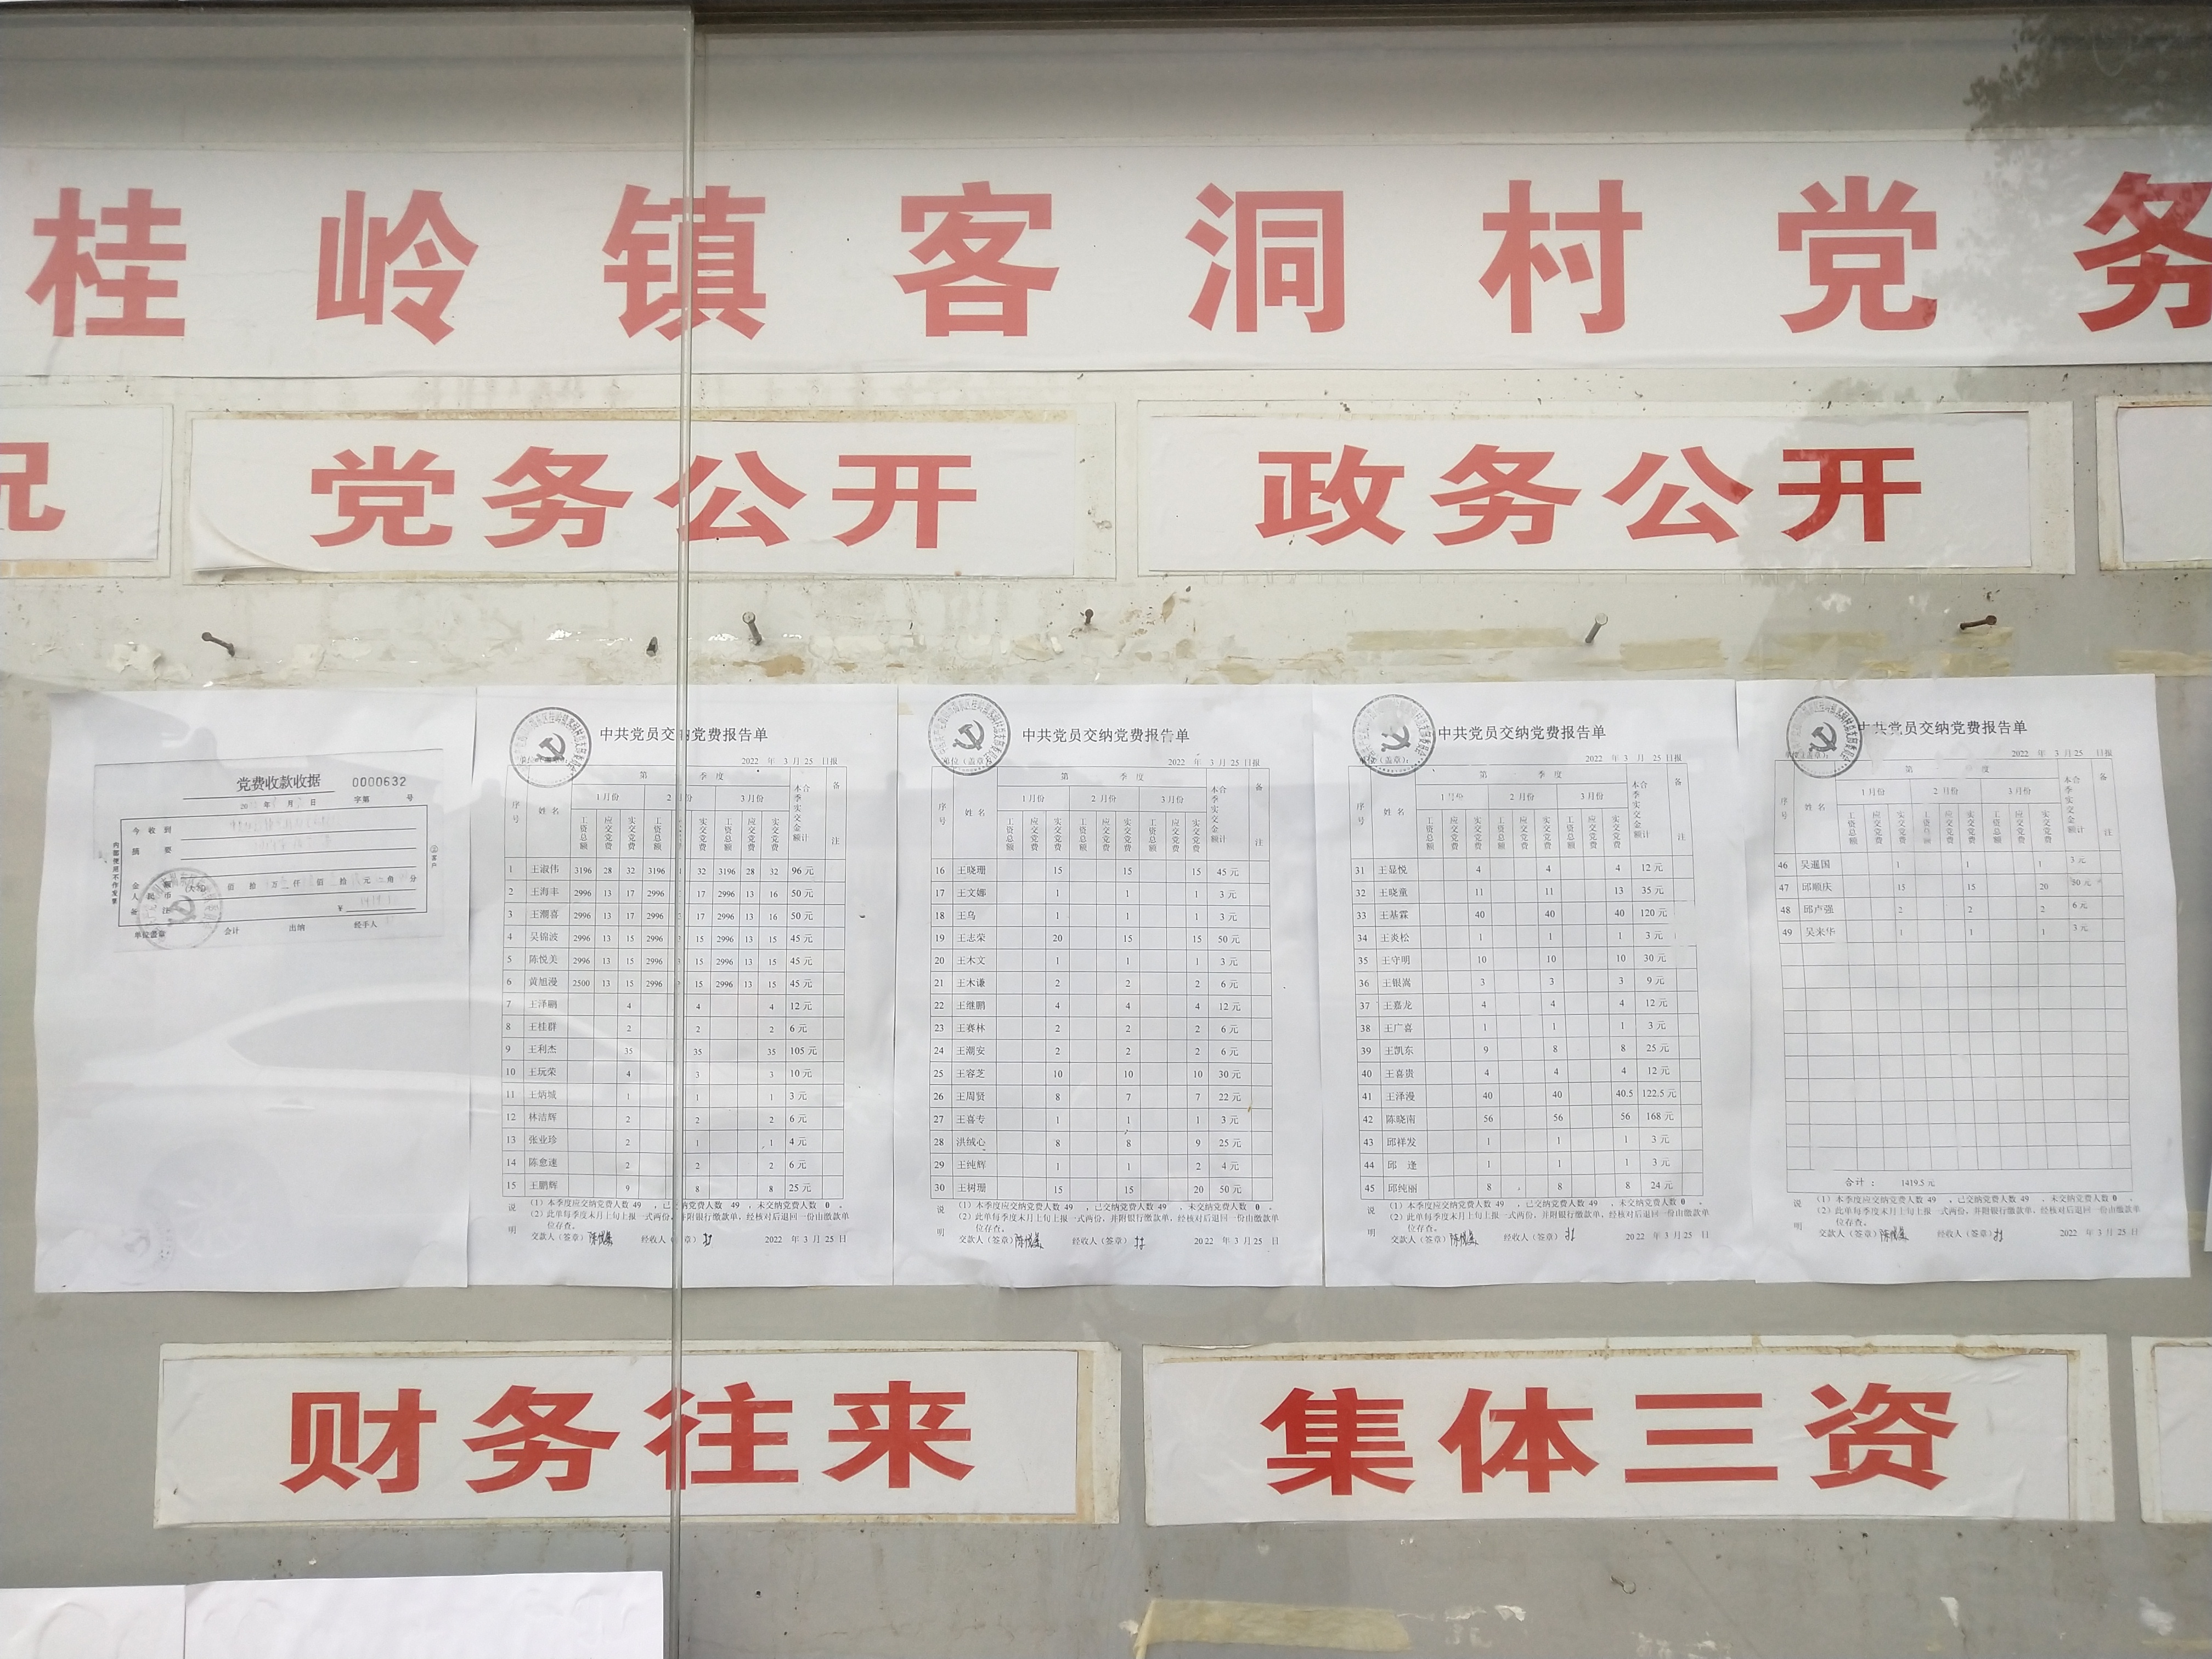 桂岭镇客洞村党务
党务公开
政务公开
党费收款收据 0000632
20 年 月 日 字第 号
今收到
摘要
金额
人民币
(大写) 佰 拾 万 仟 佰 拾 元 角 分
备注
¥
单位盖章 会计 出纳 经手人
内部使用不作发票
中共党员交纳党费报告单
2022 年 3 月 25 日报
第 季度
序号 姓名 1月份 2 月份 3月份 本季实交金额合计 备注
工资总额 应交党费 实交党费 工资总额 应交党费 实交党费 工资总额 应交党费 实交党费
1 王淑伟 3196 28 32 3196 32 3196 28 32 96 元
2 王海丰 2996 13 17 2996 17 2996 13 16 50 元
3 王潮喜 2996 13 17 2996 17 2996 13 16 50 元
4 吴锦波 2996 13 15 2996 15 2996 13 15 45 元
5 陈悦美 2996 13 15 2996 15 2996 13 15 45 元
6 黄旭漫 2500 13 15 2996 15 2996 13 15 45 元
7 王泽鹏 4 4 4 12 元
8 王桂群 2 2 2 6 元
9 王利杰 35 35 35 105 元
10 王玩荣 4 3 3 10 元
11 王炳城 1 1 1 3 元
12 林洁辉 2 2 2 6 元
13 张业珍 2 1 1 4 元
14 陈愈速 2 2 2 6 元
15 王鹏辉 9 8 8 25 元
说明
(1)本季度应交纳党费人数 49 ,已交纳党费人数 49 ,未交纳党费人数 0 。
(2)此单每季度末月上旬上报一式两份,并附银行缴款单,经核对后退回一份由缴款单
位存查。
交款人(签章) 陈悦美 经收人(签章) 2022 年 3 月 25 日
中共党员交纳党费报告单
单位(盖章): 2022 年 3 月 25 日报
第 季度
序号 姓名 1月份 2 月份 3月份 本季实交金额合计 备注
工资总额 应交党费 实交党费 工资总额 应交党费 实交党费 工资总额 应交党费 实交党费
16 王晓珊 15 15 15 45 元
17 王文娜 1 1 1 3 元
18 王乌 1 1 1 3 元
19 王志荣 20 15 15 50 元
20 王木文 1 1 1 3 元
21 王木谦 2 2 2 6 元
22 王继鹏 4 4 4 12 元
23 王赛林 2 2 2 6 元
24 王潮安 2 2 2 6 元
25 王容芝 10 10 10 30 元
26 王周贤 8 7 7 22 元
27 王喜专 1 1 1 3 元
28 洪绒心 8 8 9 25 元
29 王纯辉 1 1 2 4 元
30 王树珊 15 15 20 50 元
说明
(1)本季度应交纳党费人数 49 ,已交纳党费人数 49 ,未交纳党费人数 0 。
(2)此单每季度末月上旬上报一式两份,并附银行缴款单,经核对后退回一份由缴款单
位存查。
交款人(签章) 陈悦美 经收人(签章) 2022 年 3 月 25 日
中共党员交纳党费报告单
单位(盖章): 2022 年 3 月 25 日报
第 季度
序号 姓名 1月份 2 月份 3月份 本季实交金额合计 备注
工资总额 应交党费 实交党费 工资总额 应交党费 实交党费 工资总额 应交党费 实交党费
31 王显悦 4 4 4 12 元
32 王晓童 11 11 13 35 元
33 王基霖 40 40 40 120 元
34 王炎松 1 1 1 3 元
35 王守明 10 10 10 30 元
36 王银嵩 3 3 3 9 元
37 王嘉龙 4 4 4 12 元
38 王广喜 1 1 1 3 元
39 王凯东 9 8 8 25 元
40 王喜贵 4 4 4 12 元
41 王泽漫 40 40 40.5 122.5 元
42 陈晓南 56 56 56 168 元
43 邱祥发 1 1 1 3 元
44 邱 逢 1 1 1 3 元
45 邱纯丽 8 8 8 24 元
说明
(1)本季度应交纳党费人数 49 ,已交纳党费人数 49 ,未交纳党费人数 0 。
(2)此单每季度末月上旬上报一式两份,并附银行缴款单,经核对后退回一份由缴款单
位存查。
交款人(签章) 陈悦美 经收人(签章) 2022 年 3 月 25 日
中共党员交纳党费报告单
单位(盖章): 2022 年 3 月 25 日报
第 季度
序号 姓名 1月份 2 月份 3月份 本季实交金额合计 备注
工资总额 应交党费 实交党费 工资总额 应交党费 实交党费 工资总额 应交党费 实交党费
46 吴暹国 1 1 1 3 元
47 邱顺庆 15 15 20 50 元
48 邱卢强 2 2 2 6 元
49 吴来华 1 1 1 3 元
合计: 1419.5 元
说明
(1)本季度应交纳党费人数 49 ,已交纳党费人数 49 ,未交纳党费人数 0 。
(2)此单每季度末月上旬上报一式两份,并附银行缴款单,经核对后退回一份由缴款单
位存查。
交款人(签章) 陈悦美 经收人(签章) 2022 年 3 月 25 日
财务往来
集体三资